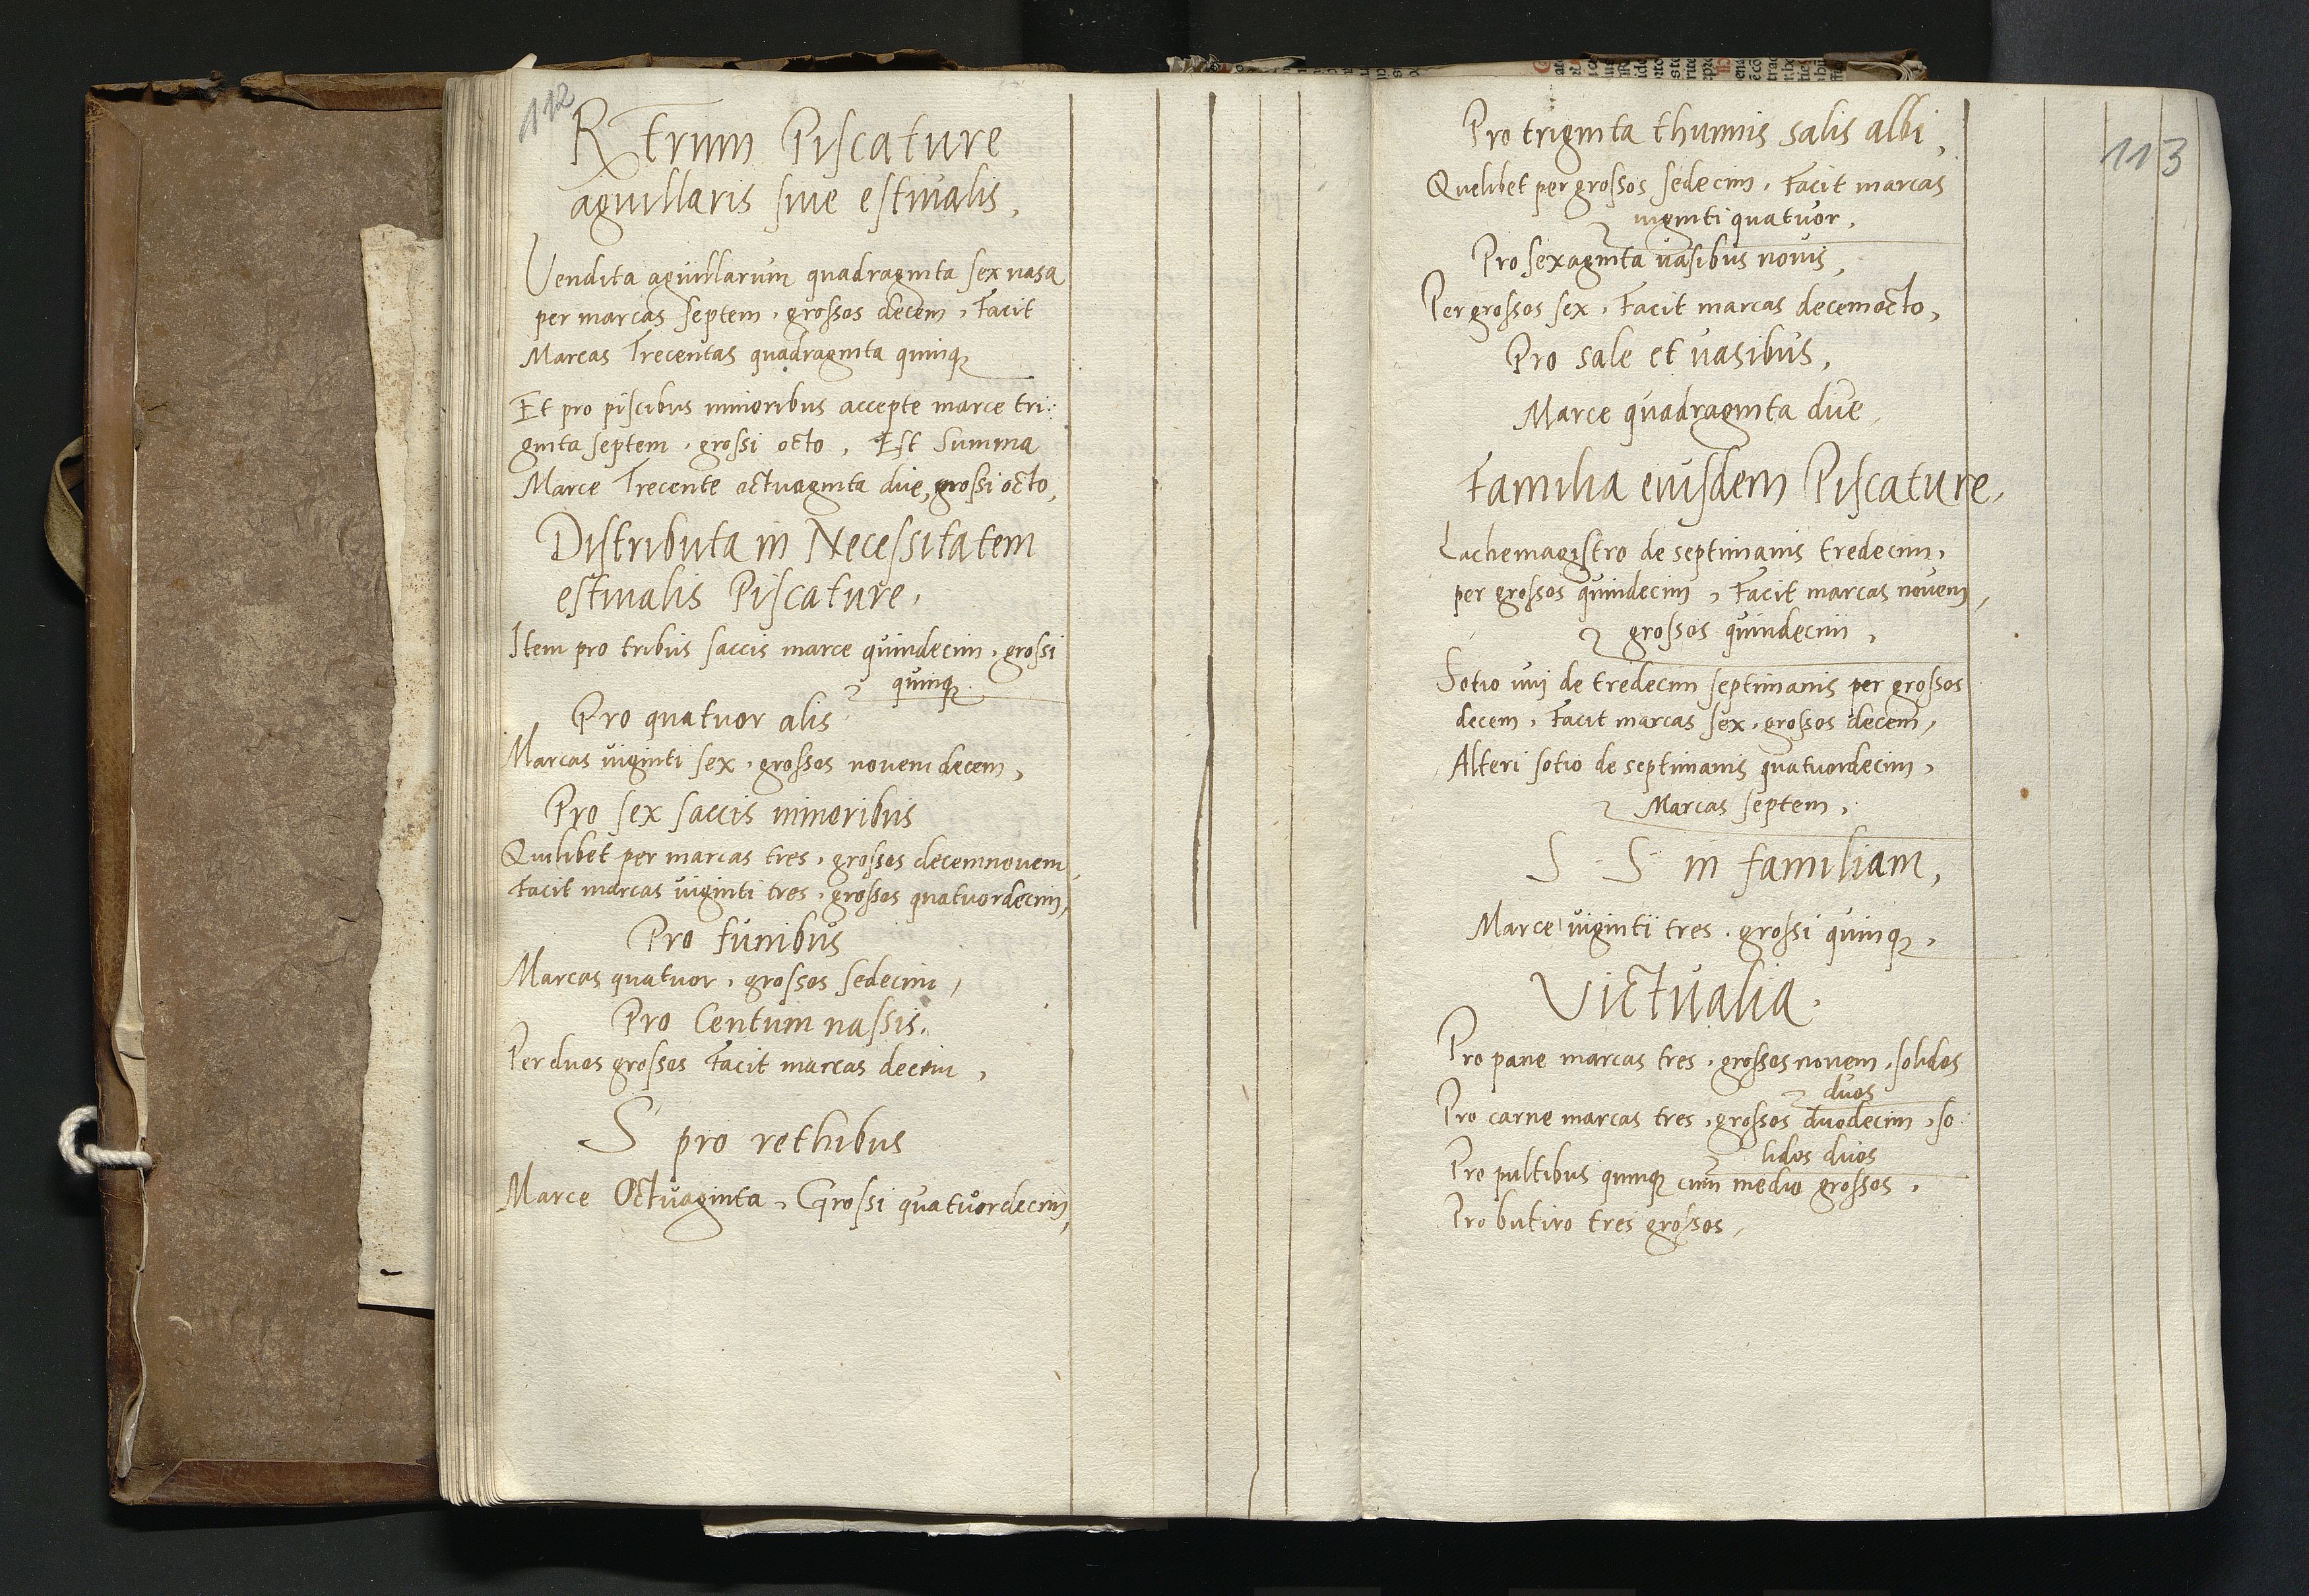 112
R Etrum Piscature
aguillaris siue estiualis,
Vendita aguillarum quadraginta sex uasa
per marcas septem, grossos decem, Facit
Marcas Trecentas quadraginta quinq
Et pro piscibus minoribus accepte marce tri:
ginta septem, grossi octo, Est Summa
Marce Trecente octuaginta due, grossi octo,
Distributa in Necessitatem
estiualis Piscature,
Item pro tribus saccis marce quindecim, grossi
quinq
Pro quatuor alis
Marcas uiginti sex, grossos nouem decem,
Pro sex saccis minoribus
Quilibet per marcas tres, grossos decemnouem
Facit marcas uiginti tres, grossos quatuordecim,
Pro funibus
Marcas quatuor, grossos sedecim,
Pro Centum nassis.
Per duos grossos Facit marcas decem,
S pro rethibus
Marce Octuaginta, Grossi quatuordecim,
113
Pro triginta thunnis salis albi,
Quelibet per grossos sedecim, Facit marcas
uiginti quatuor,
Pro sexaginta uasibus nouis,
Per grossos sex, Facit marcas decemocto,
Pro sale et uasibus,
Marce quadraginta due
Familia eiusdem Piscature,
Lachemagistro de septimanis tredecim,
per grossos quindecim, Facit marcas nouem,
grossos quindecim,
Sotio uni de tredecim septimanis per grossos
decem, Facit marcas sex, grossos decem,
Alteri sotio de septimanis quatuordecim,
Marcas septem,
S S in familiam,
Marce uiginti tres, grossi quinq,
Victualia.
Pro pane marcas tres, grossos nouem, solidos
duos
Pro carne marcas tres, grossos duodecim, so
lidos duos
Pro pultibus quinq cum medio grossos,
Pro butiro tres grossos,